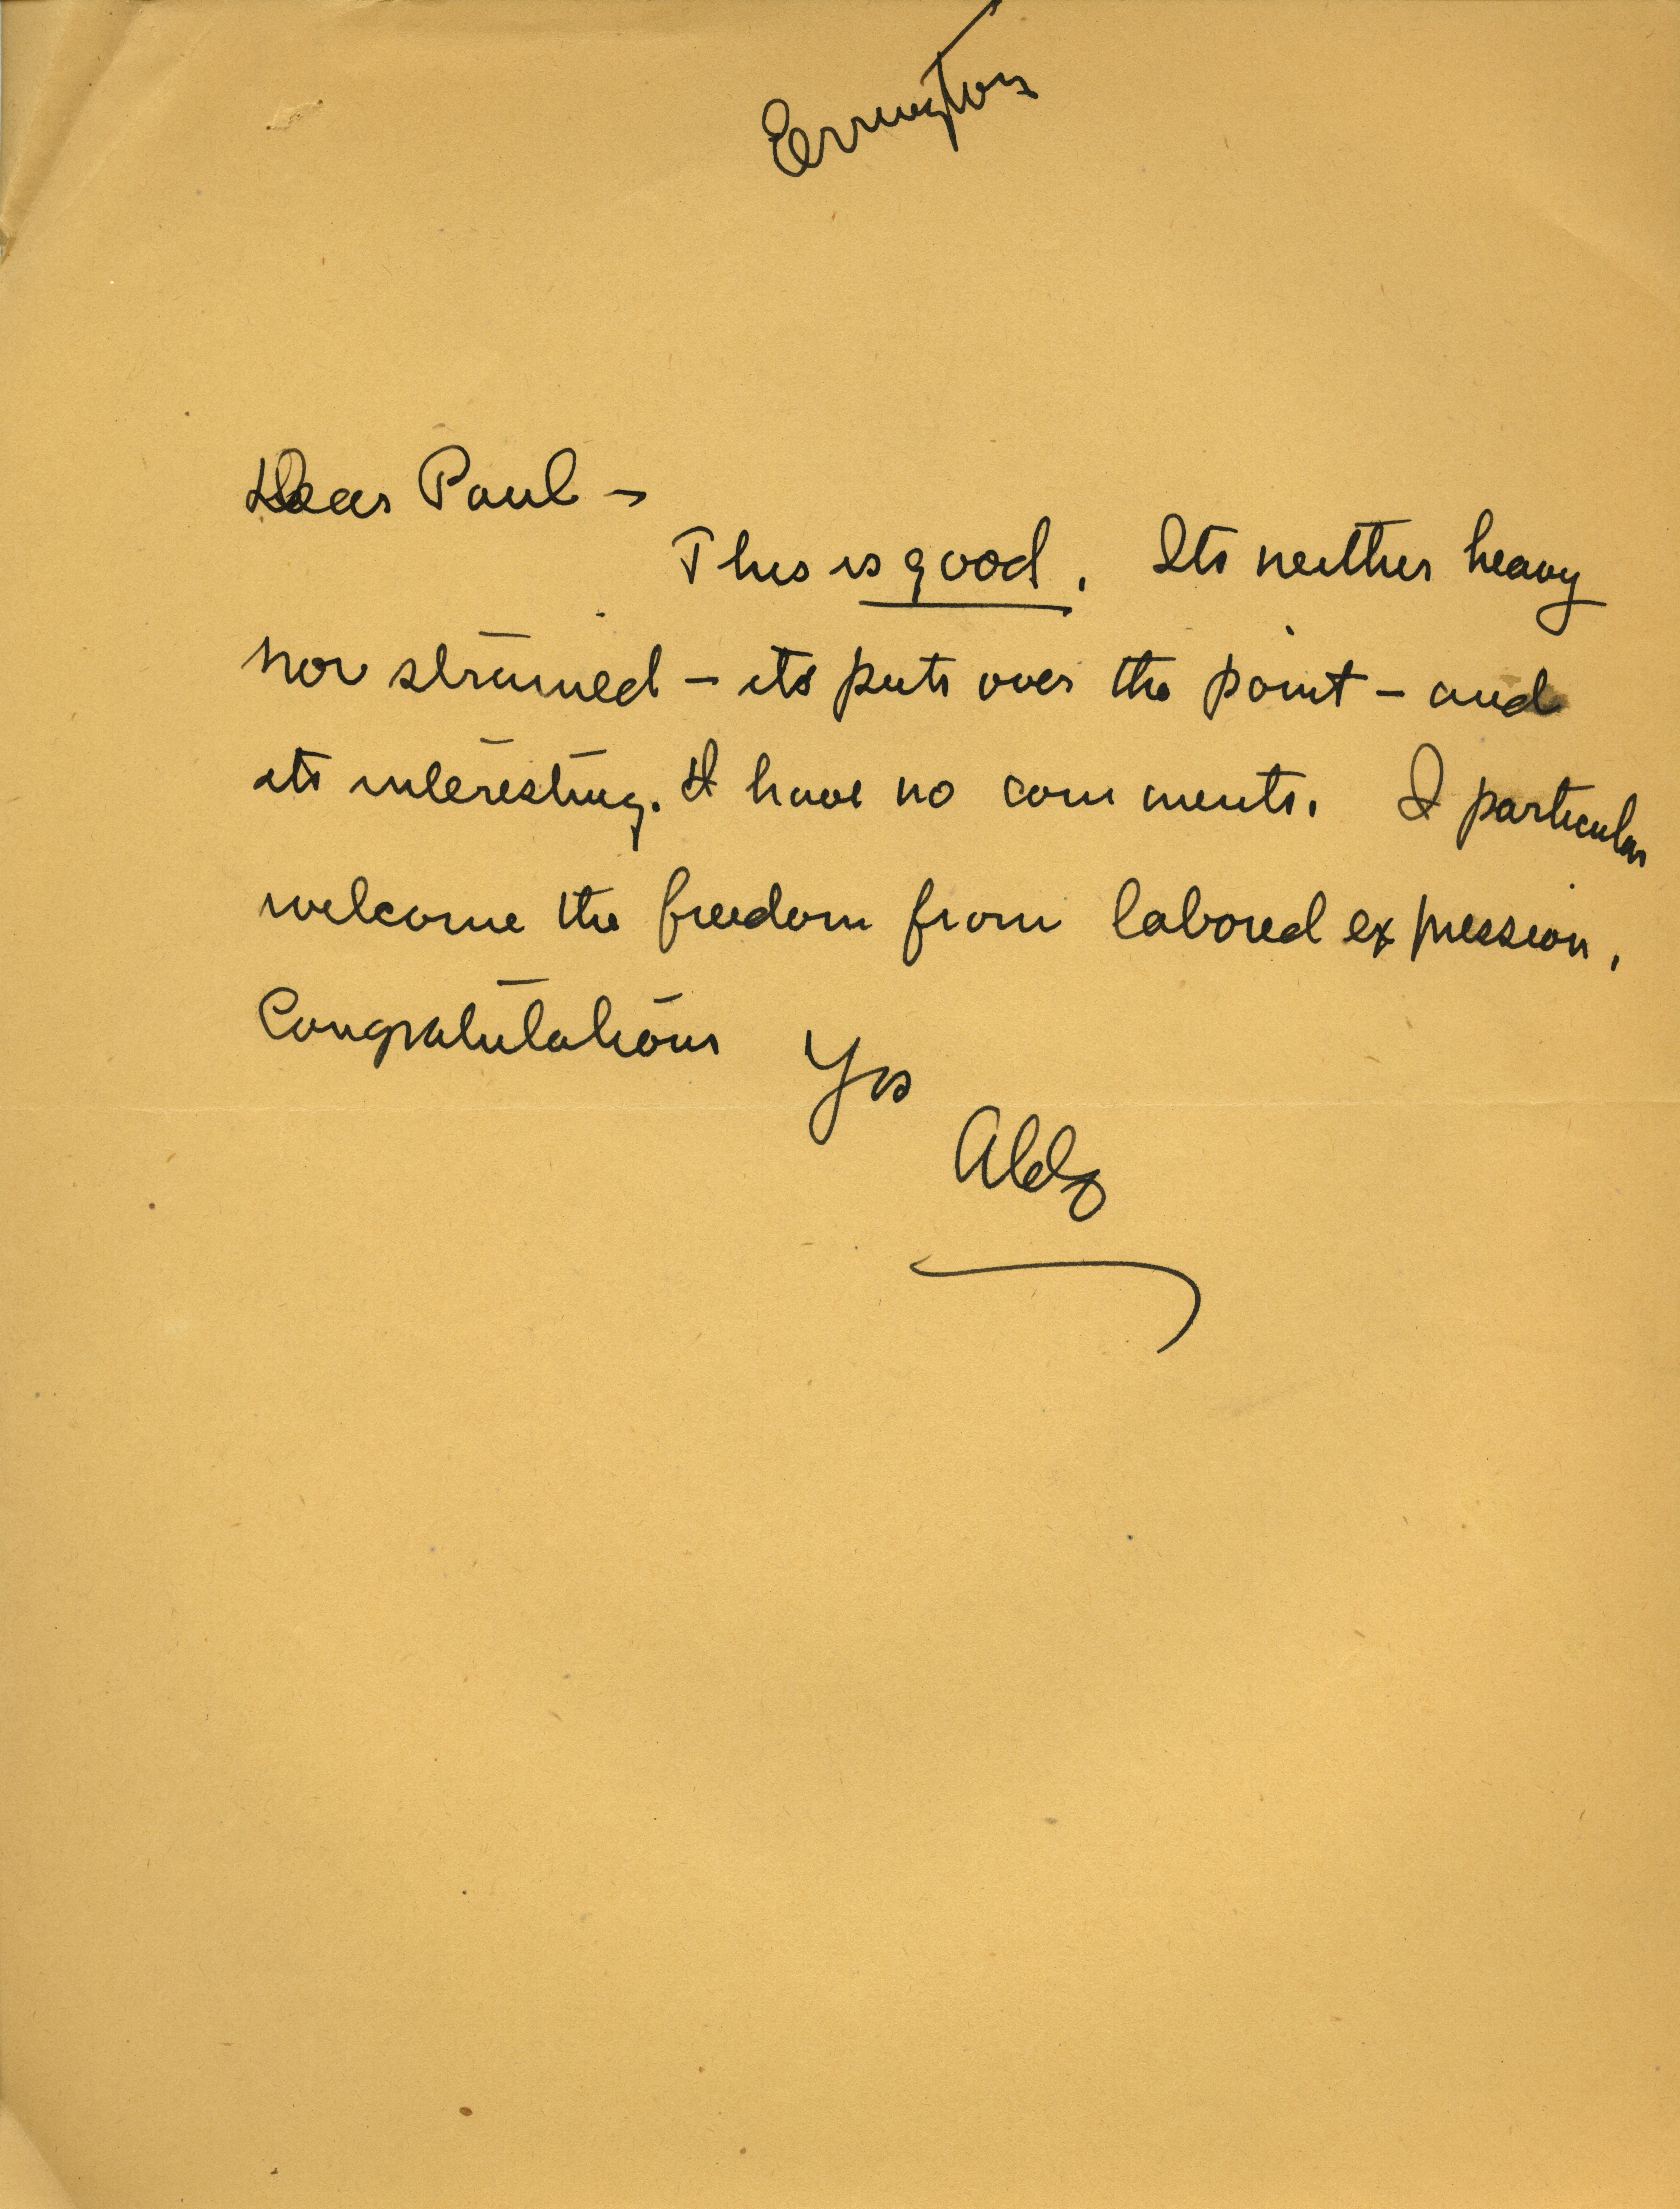 Errington
Dear Paul –
This is good. Its neither heavy
nor strained – its puts over the point – and
its interesting. I have no comments. I particular
welcome the freedom from labored expression.
Congratulations Yrs
Aldo